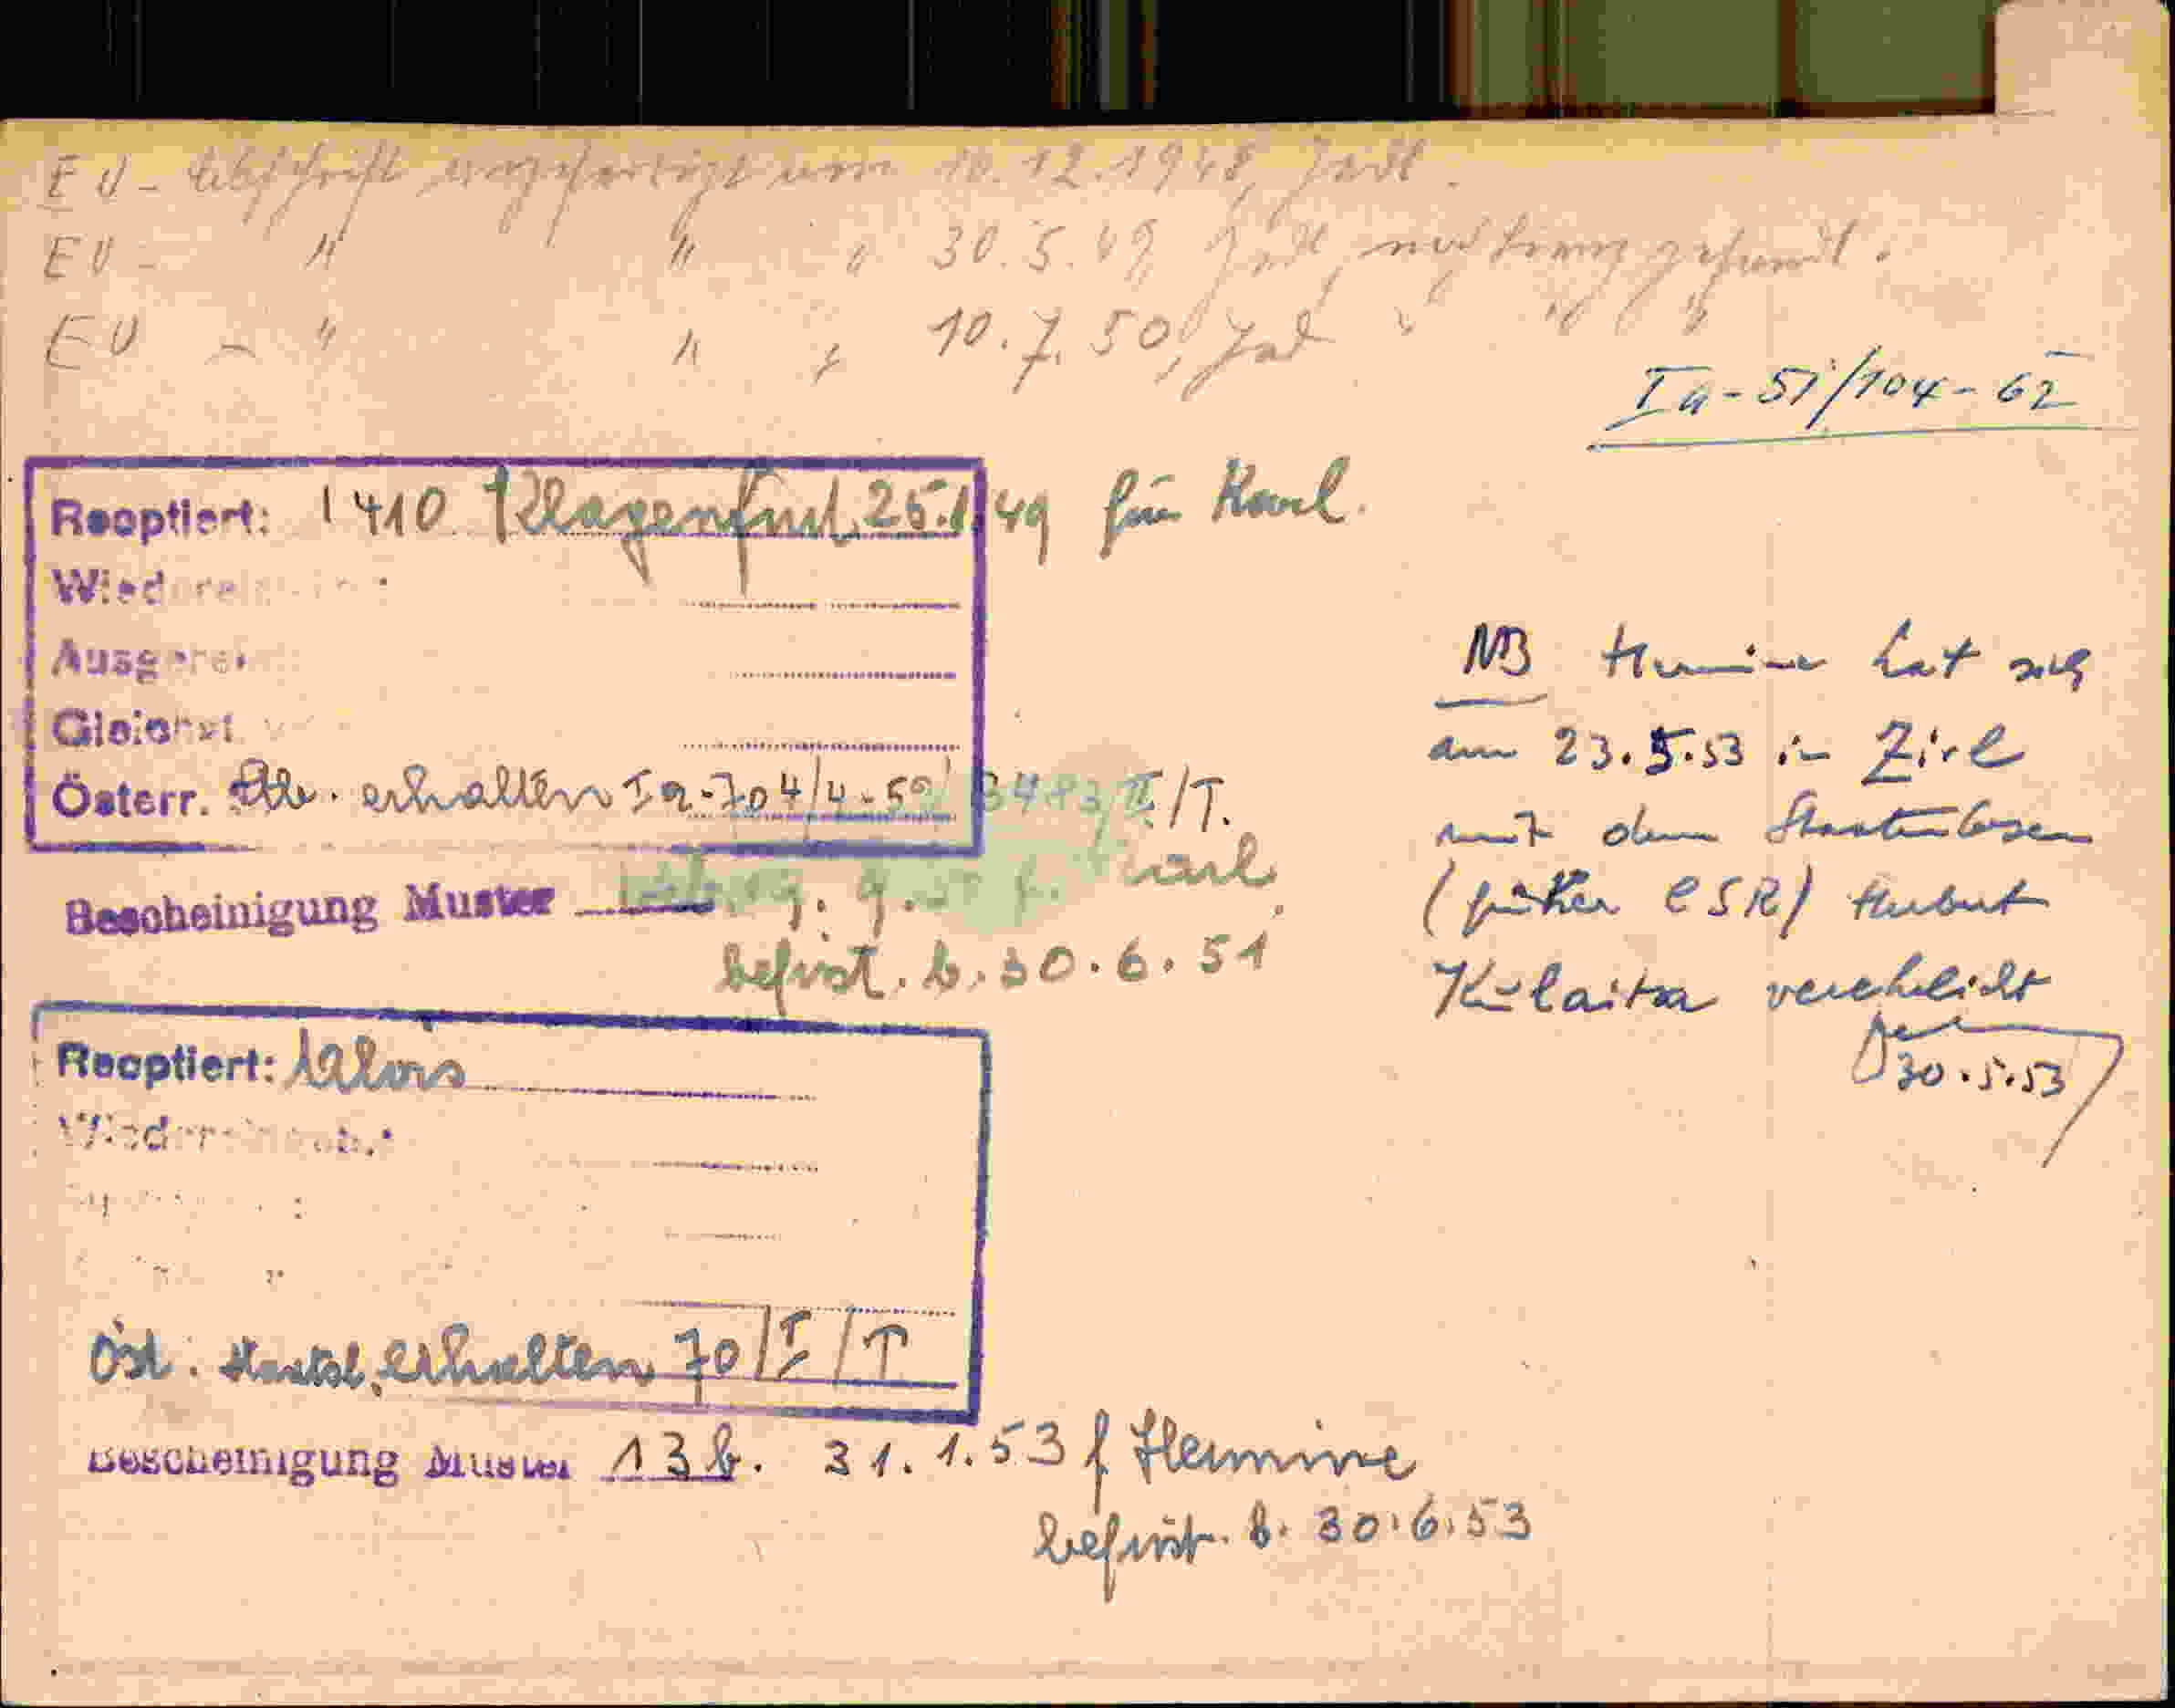 EU - Abschrift angefertigt am 10.12.1948,
EU - " " " 30.5.49
EU - " " " 10.7.50,
Ia-57/104-62
Reoptiert: 1410 Klagenfurt 25.1.49 für Karl.
Österr. erhalten Ia-704/4-50 3483/II/T.
Bescheinigung Muster Karl
befrist. b. 30.6.51
NB Hermine hat sich
am 23.5.53 in Zirl
mit dem Staatenlosen
(früher CSR) Herbert
verehelicht
30.5.53
Reoptiert: Alois
Öst. Staatsb. erhalten 70/I/T
Bescheinigung Muster 13 b. 31.1.53 f Hermine
befrist. b. 30.6.53